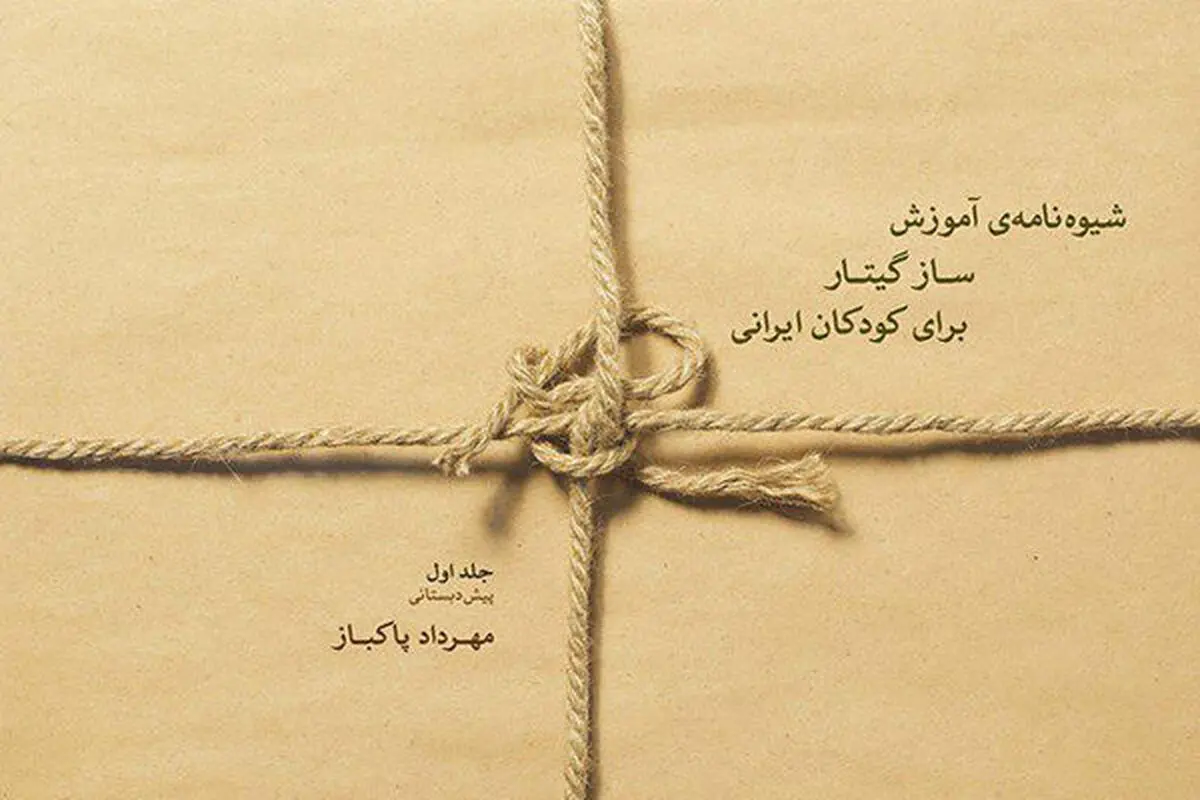 شیوه‌نامه‌ی آموزش
ساز گیتار
برای کودکان ایرانی
جلد اول
پیش‌دبستانی
مهرداد پاکباز